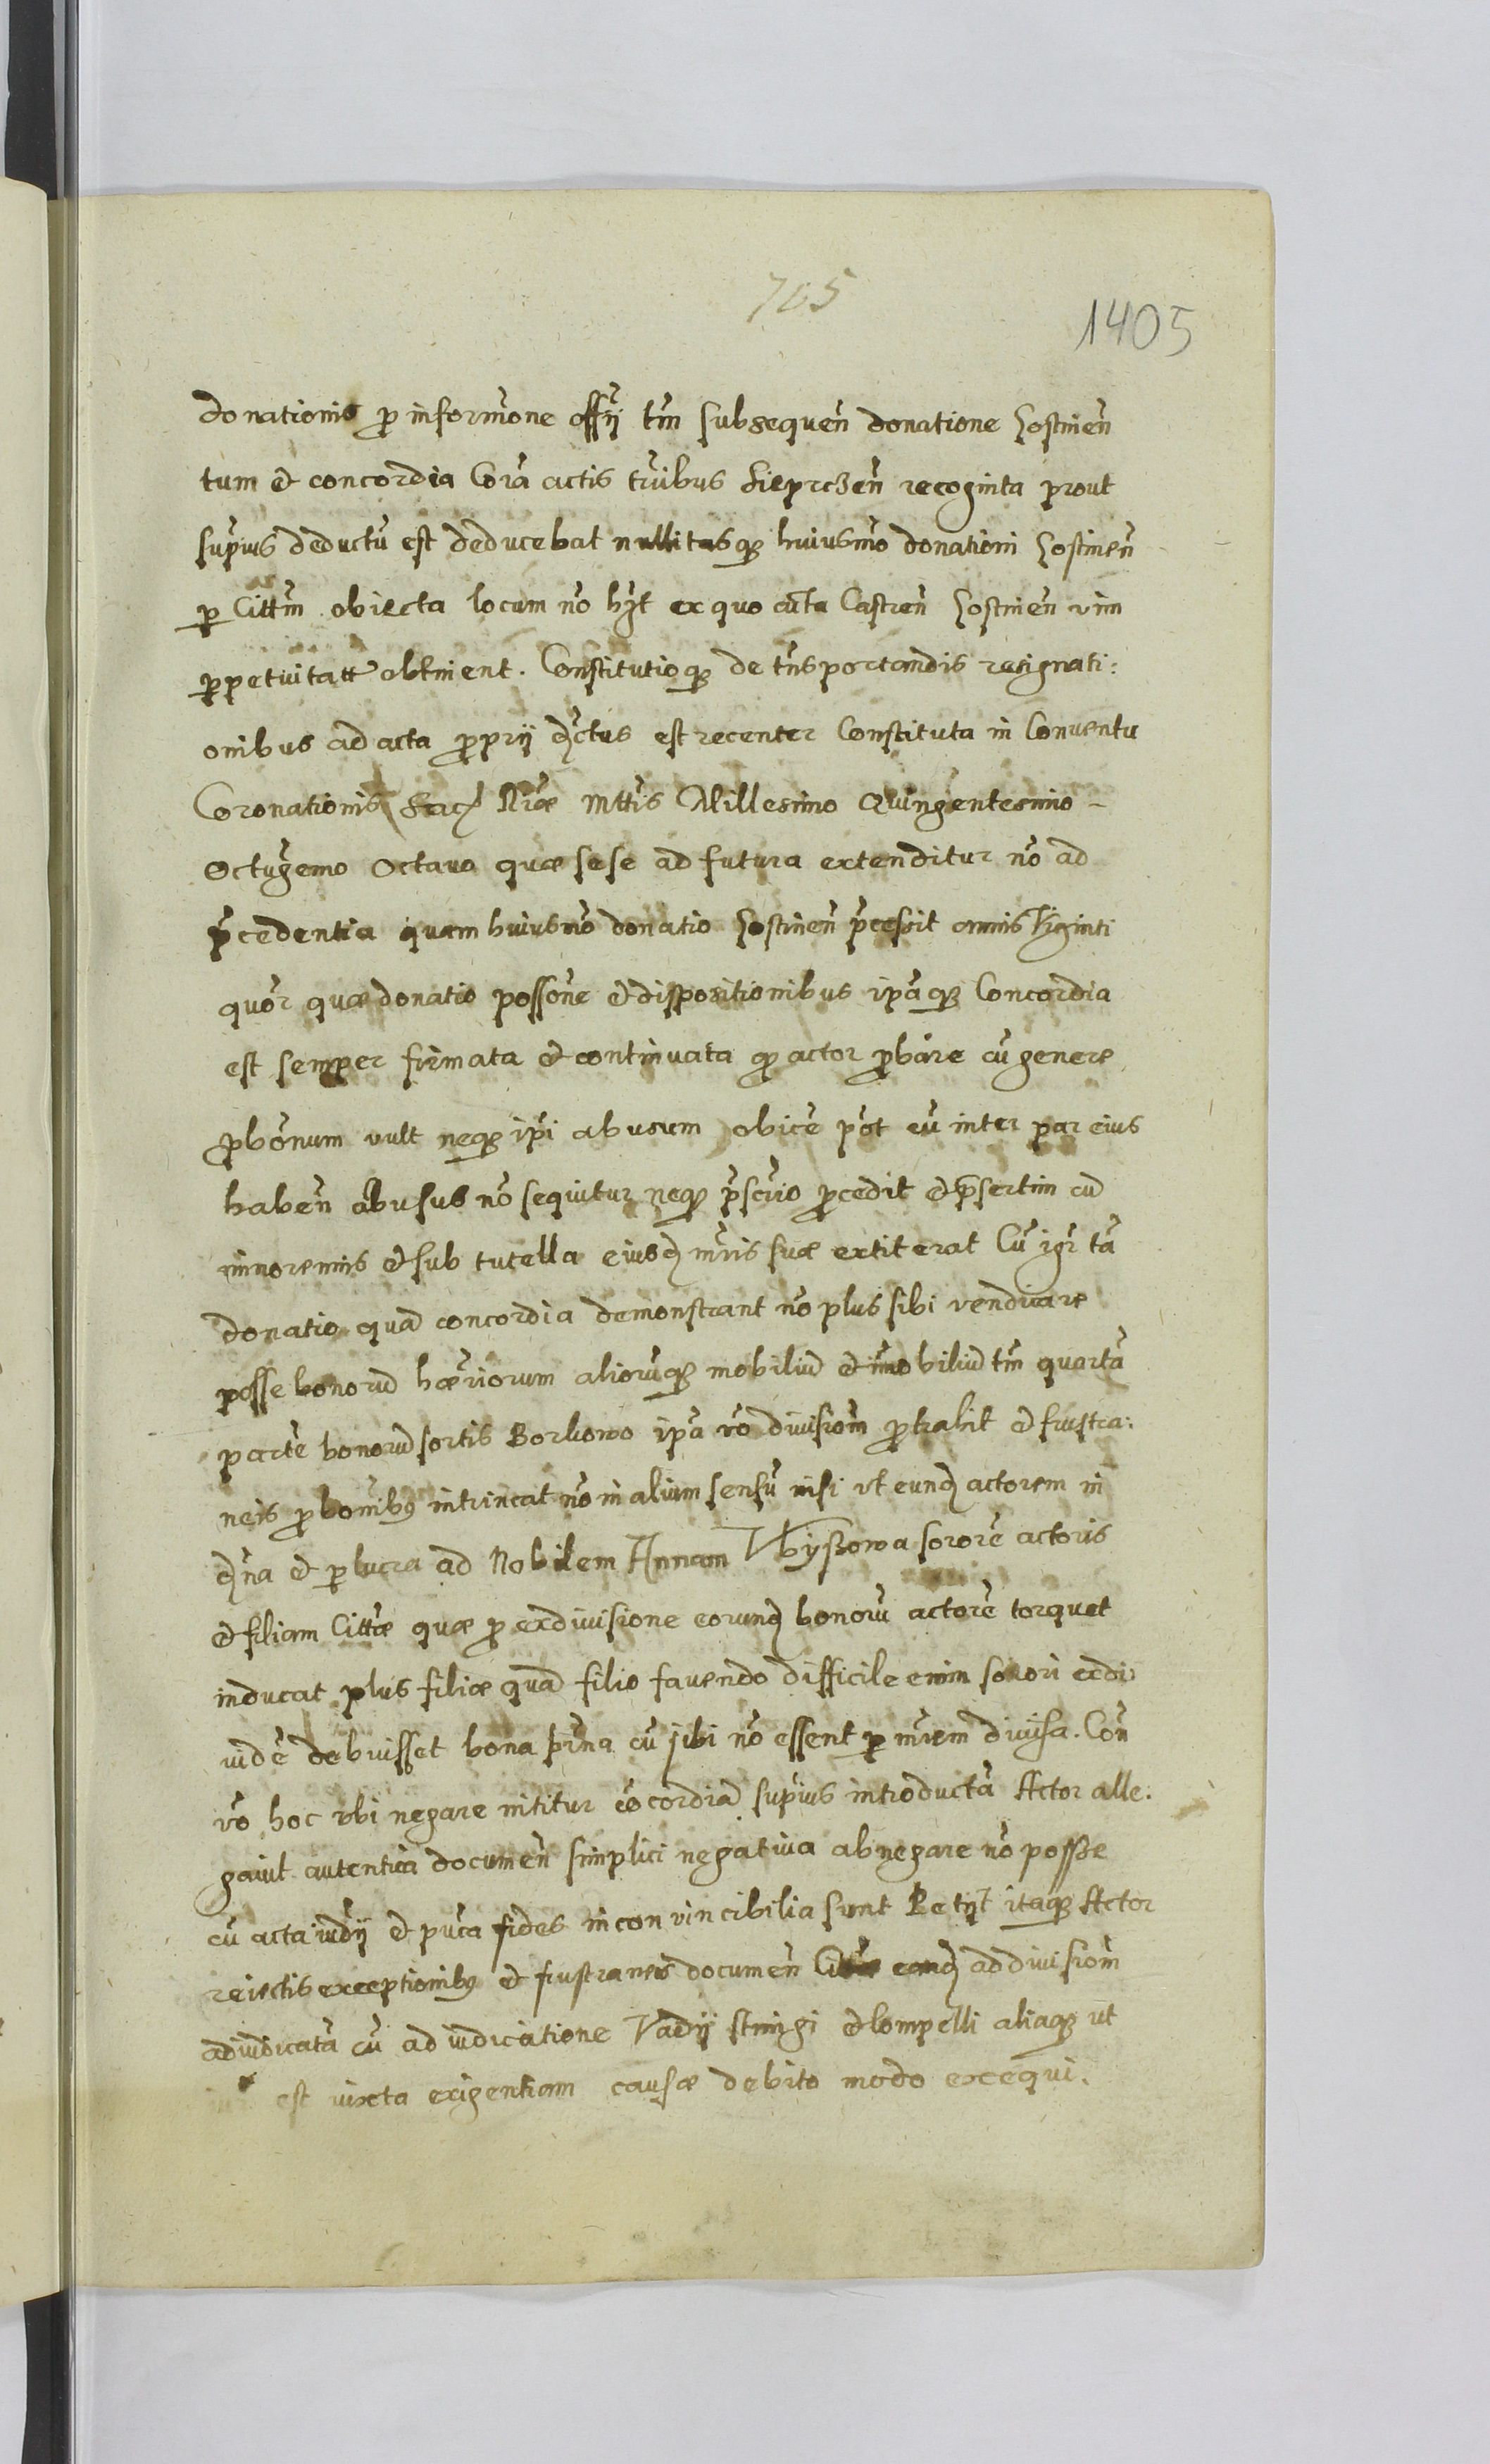 705
1405
donationis p informone offij tm subsequen donatione Gostinen
tum et concordia Cora actis tribus Sieprczen recognita prout
supius deductu est deducebat nullitasq huiusmo donationi Gostinen
p Cittm obiecta locum no hzt ex quo acta Castren Gostinen vim
ppetuitatt obtinent. Constitutioq de tnsportandis resignati:
onibus ad acta proprij dctus est recenter Constituta in Conuentu
Coronationis Sacz Nræ Mttis Millesimo Quingentesimo -
Octugemo Octauo quæ sese ad futura extenditur no ad
pcedentia quam huiusmo donatio Gostinen pcessit annis Viginti
quor quæ donatio possone et dispositionibus ipaq Concordia
est semper firmata et continuata q actor probare cu genere
probonum vult neq ipi abusum obice pot cu inter par eius
haben abusus no sequitur neq pscrio procedit et psertim cu
minorennis et sub tutella eiusd mris suæ extiterat Cu igr ta
donatio qua concordia demonstrant no plus sibi vendicare
posse bonoru hæriorum alioruq mobiliu et imobiliu tm quarta
parte bonoru sortis Borkowo ipa vo divisiom protrahit et frustra:
neis probonibq intrincat no in alium sensu nisi vt eund actorem in
dna et p lucra ad Nobilem Annam Vbyssowa sorore actoris
et filiam Cittæ quæ p exdiuisione eorund bonoru actore torquet
inducat plus filiæ qua filio fauendo difficile enim sorori exdi:
uide debuisset bona pna cu sibi no essent p mrem diuisa. Con
vo hoc vbi negare nititur cocordia supius introducta Actor alle:
gauit autentica documen simplici negatiua abnegare no posse
cu acta iudij et puca fides inconvincibilia sunt Petijt itaq Actor
reiectis exceptionibq et frustraneis documen eand ad diuisiom
adiudicata cu adiudicatione Vadij stringi et compelli aliaq vt
iur est iuxta exigentiam causæ debito modo exequi.